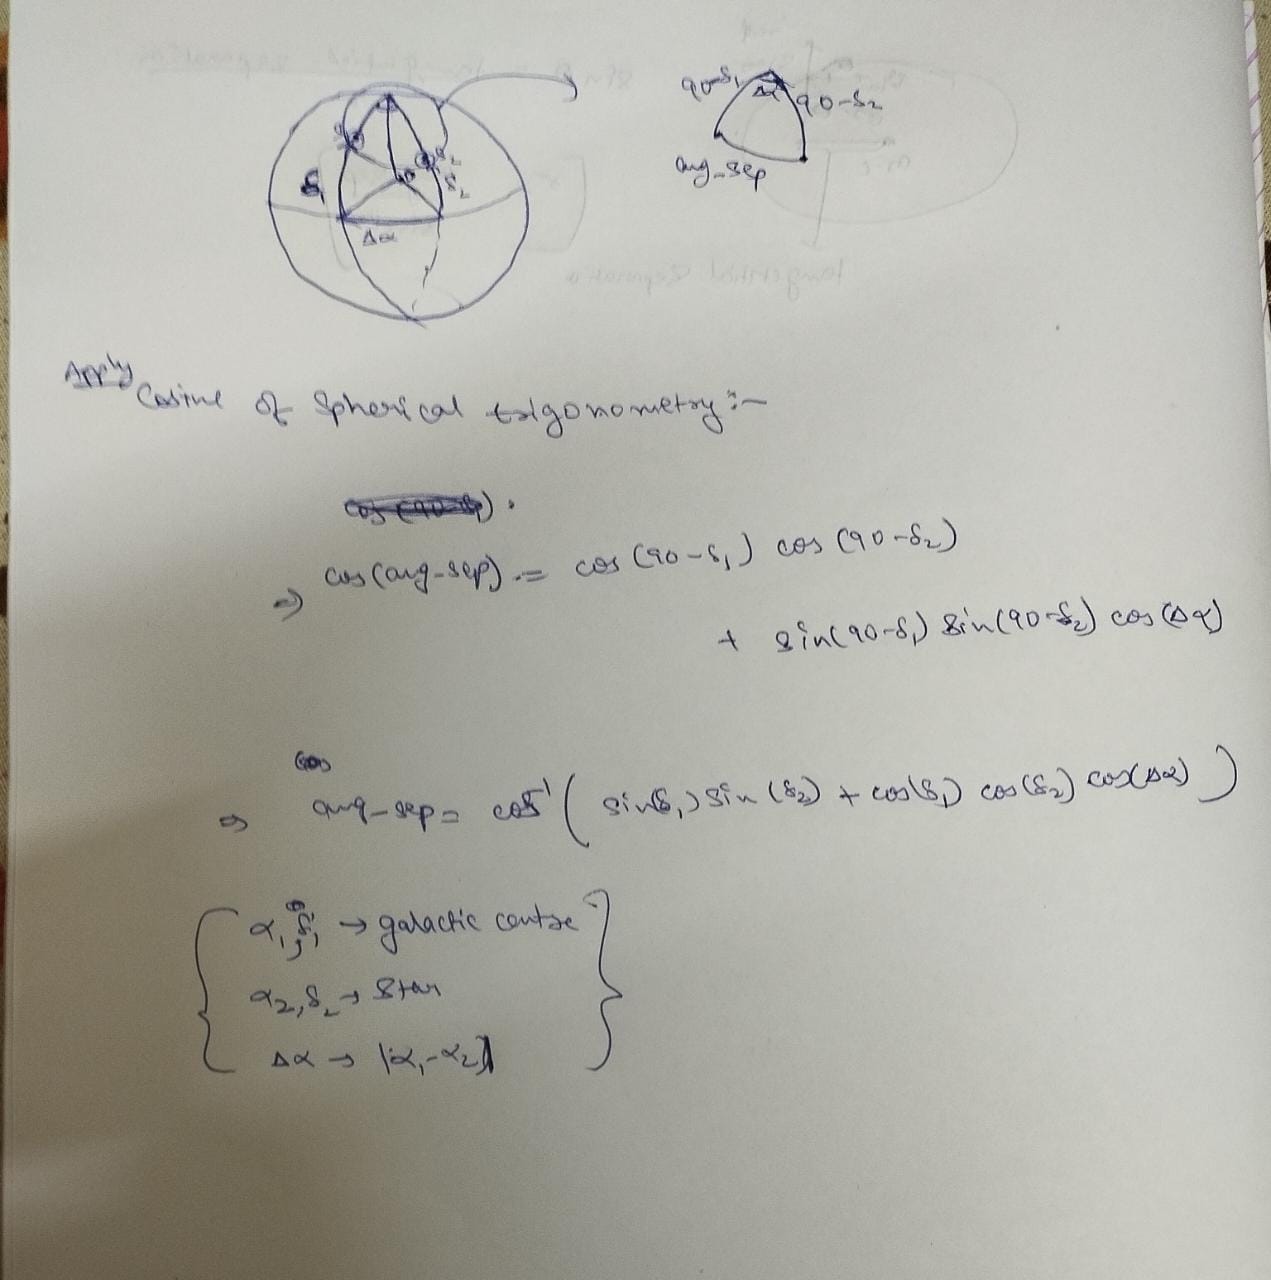 δ₁
δ₂
Δα
90-δ₁
Δα
90-δ₂
ang-sep
Apply
Cosine of Spherical trigonometry :-
⇒ cos(ang-sep) = cos (90-δ₁) cos (90-δ₂)
+ sin(90-δ₁) sin(90-δ₂) cos (Δα)
⇒ ang-sep = cos⁻¹ ( sin(δ₁) sin (δ₂) + cos(δ₁) cos(δ₂) cos(Δα) )
α₁, δ₁ → galactic centre
α₂, δ₂ → Star
Δα → |α₁-α₂|